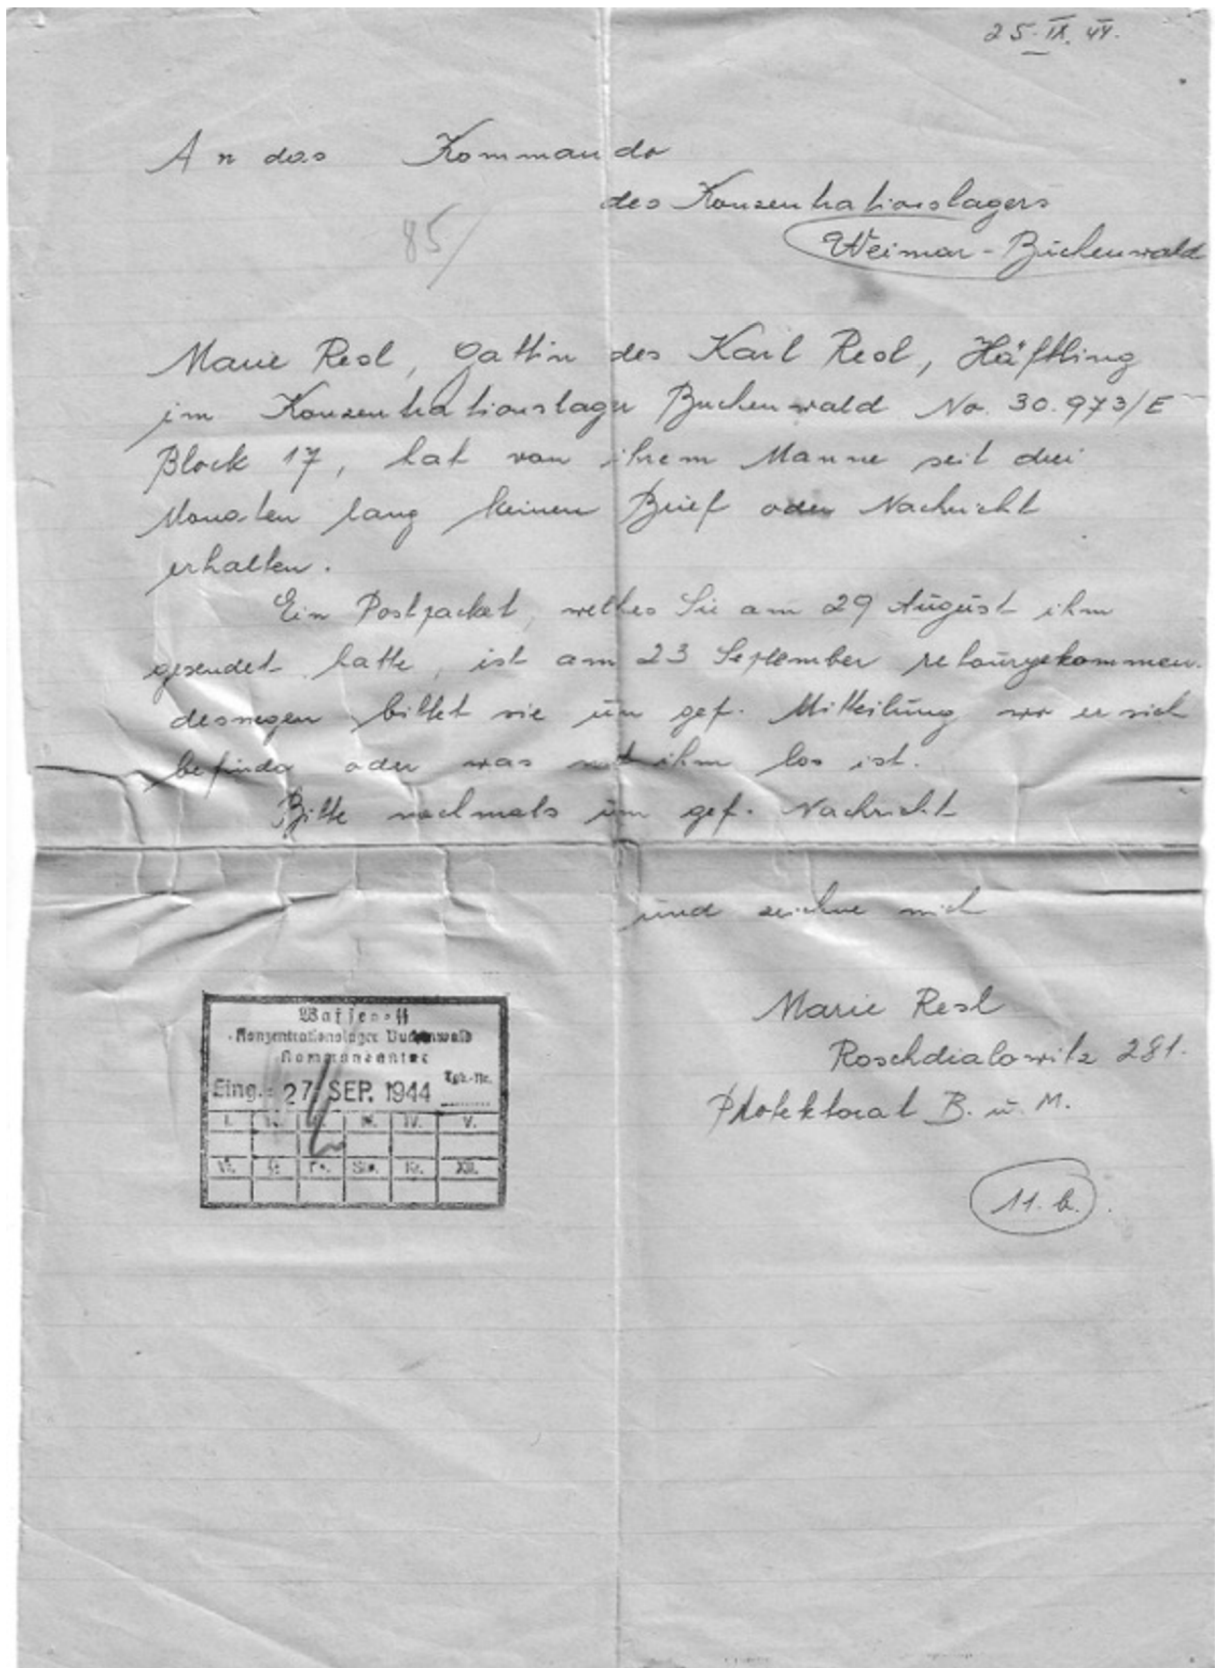 25.IX.44.
An das Kommando
des Konzentrationslagers
85/
Weimar-Buchenwald
Marie Resl, Gattin des Karl Resl, Häftling
im Konzentrationslager Buchenwald No. 30.973/E
Block 17, hat von ihrem Manne seit drei
Monaten lang keinen Brief oder Nachricht
erhalten.
Ein Postpacket, welches Sie am 29 August ihm
gesendet hatte, ist am 23 September retourgekommen.
deswegen bittet sie um gef. Mitteilung wo er sich
befinde oder was mit ihm los ist.
Bitte nochmals um gef. Nachricht
und zeichne mich
Marie Resl
Roschdialowitz 281.
Protektorat B. u. M.
11. b.
Waffen-SS
Konzentrationslager Buchenwald
Kommandantur
Eing.: 27. SEP. 1944 Tgb.-Nr.
I. IV. V.
VI. XII.